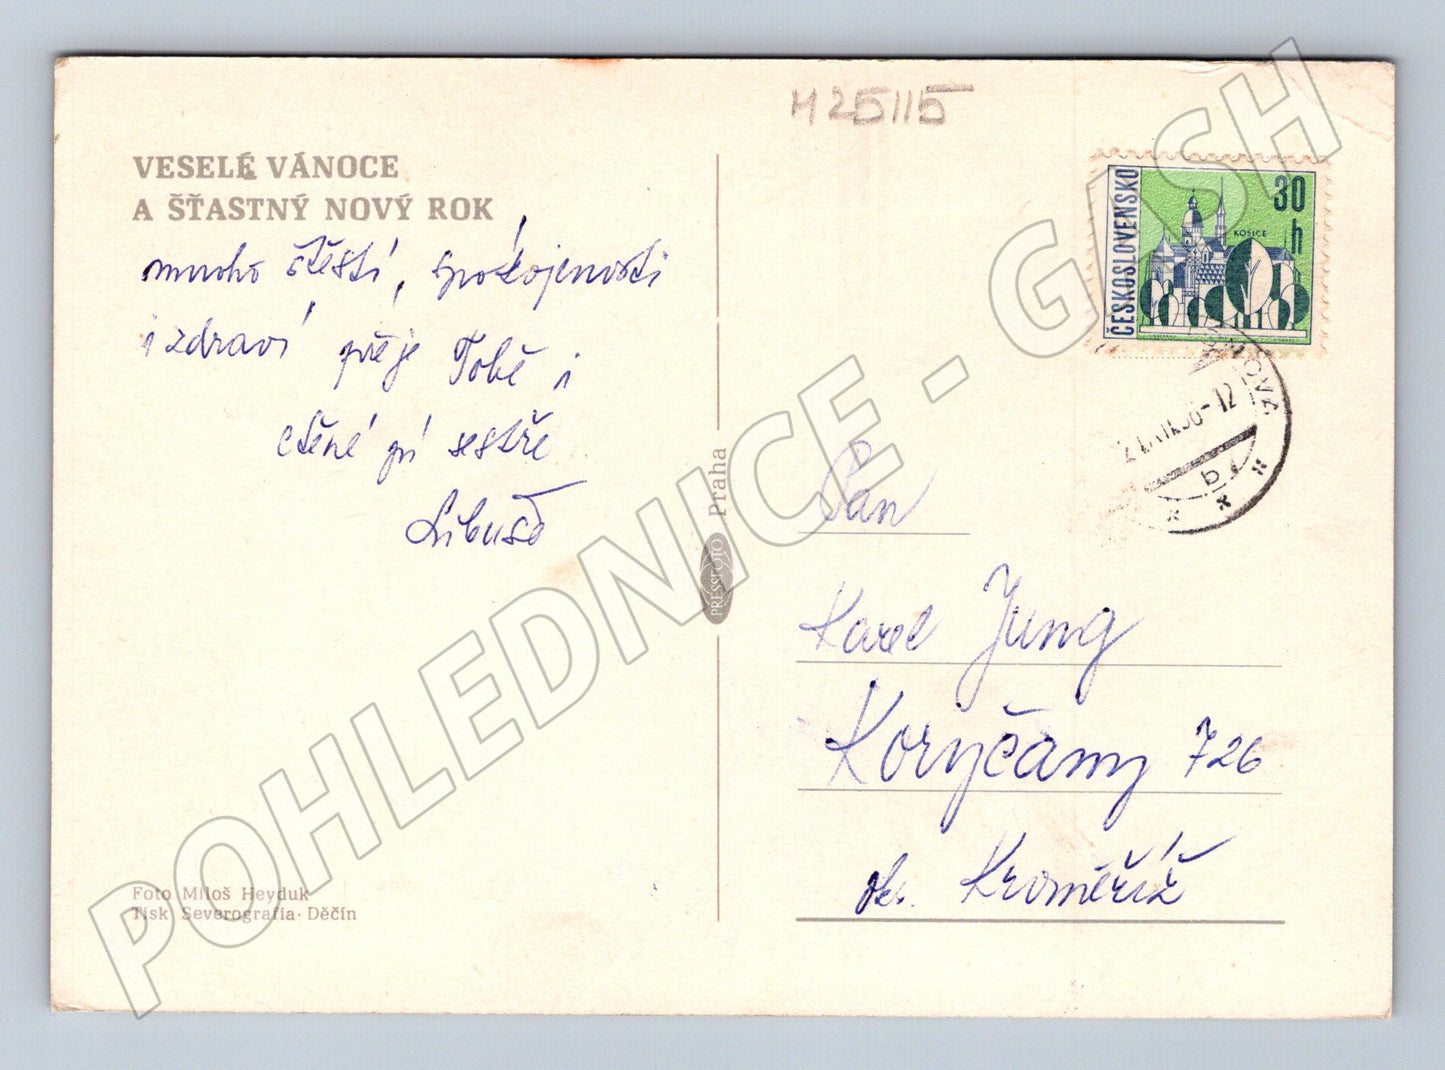 M25115
VESELÉ VÁNOCE
A ŠŤASTNÝ NOVÝ ROK
mnoho štěstí, spokojenosti
i zdraví přeje Tobě i
ctěné pí sestře
Libuše
ČESKOSLOVENSKO
30
h
KOŠICE
-12
b
Praha
PRESSFOTO
Pan
Karel Jung
Koryčany 726
ok. Kroměříž
Foto Miloš Heyduk
Tisk Severografia · Děčín
POHLEDNICE - GASH